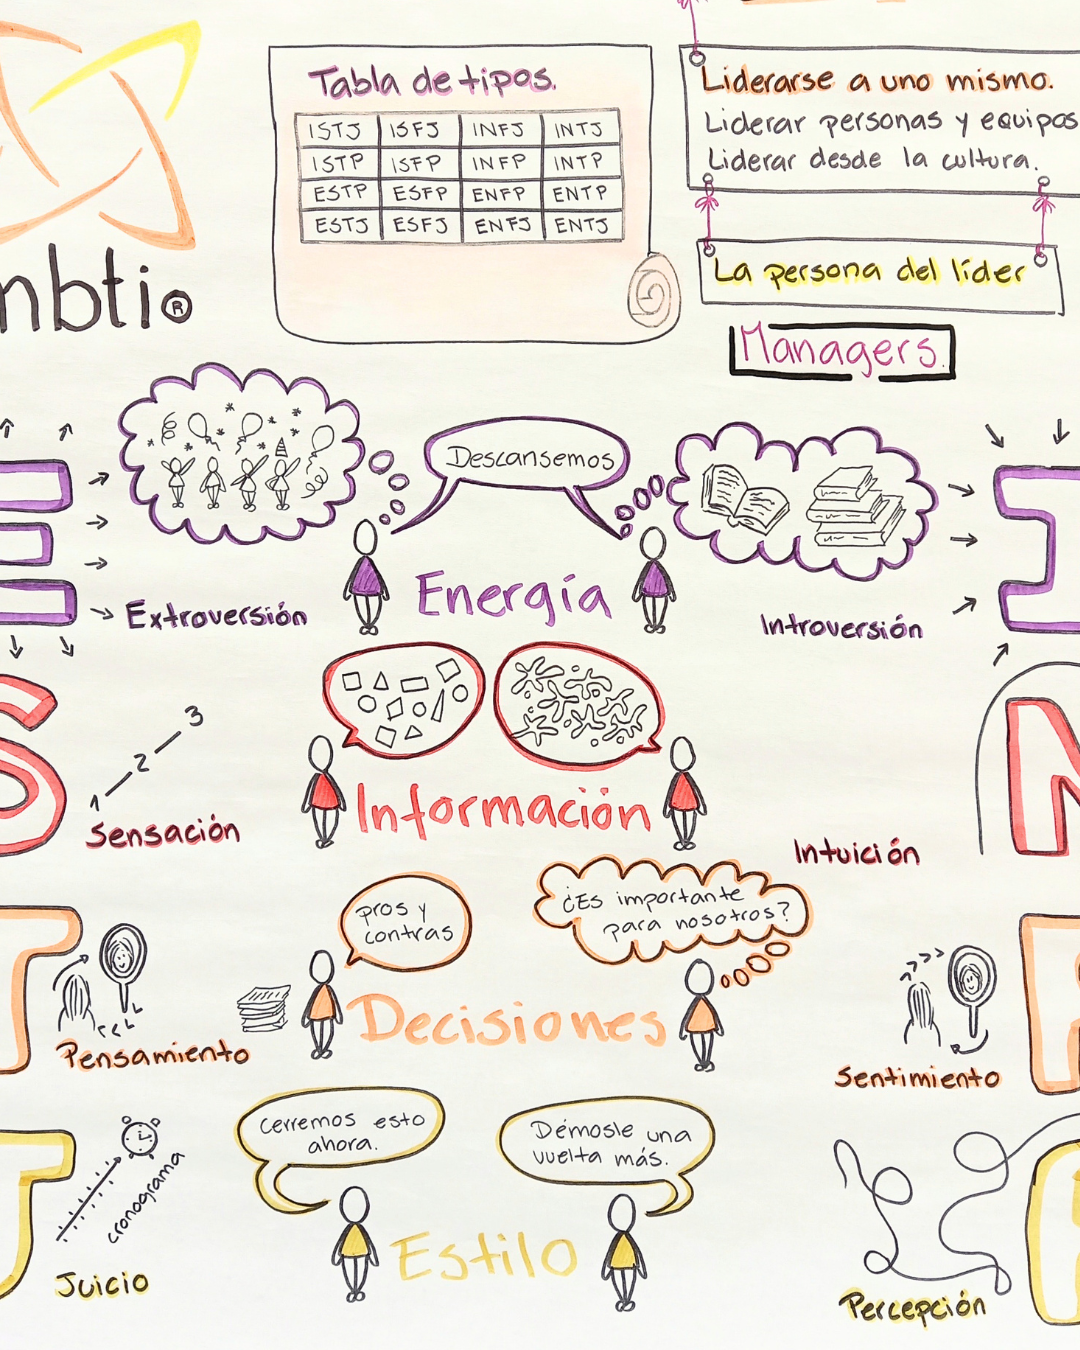 mbti®
Tabla de tipos.
ISTJ ISFJ INFJ INTJ
ISTP ISFP INFP INTP
ESTP ESFP ENFP ENTP
ESTJ ESFJ ENFJ ENTJ
Liderarse a uno mismo.
Liderar personas y equipos
Liderar desde la cultura.
La persona del líder
Managers.
Descansemos
E
Extroversión
Energía
Introversión
I
S
1 2 3
Sensación
Información
Intuición
N
T
pros y
contras
¿Es importante
para nosotros?
Pensamiento
Decisiones
Sentimiento
F
J
cronograma
Cerremos esto
ahora.
Démosle una
vuelta más.
Juicio
Estilo
Percepción
P